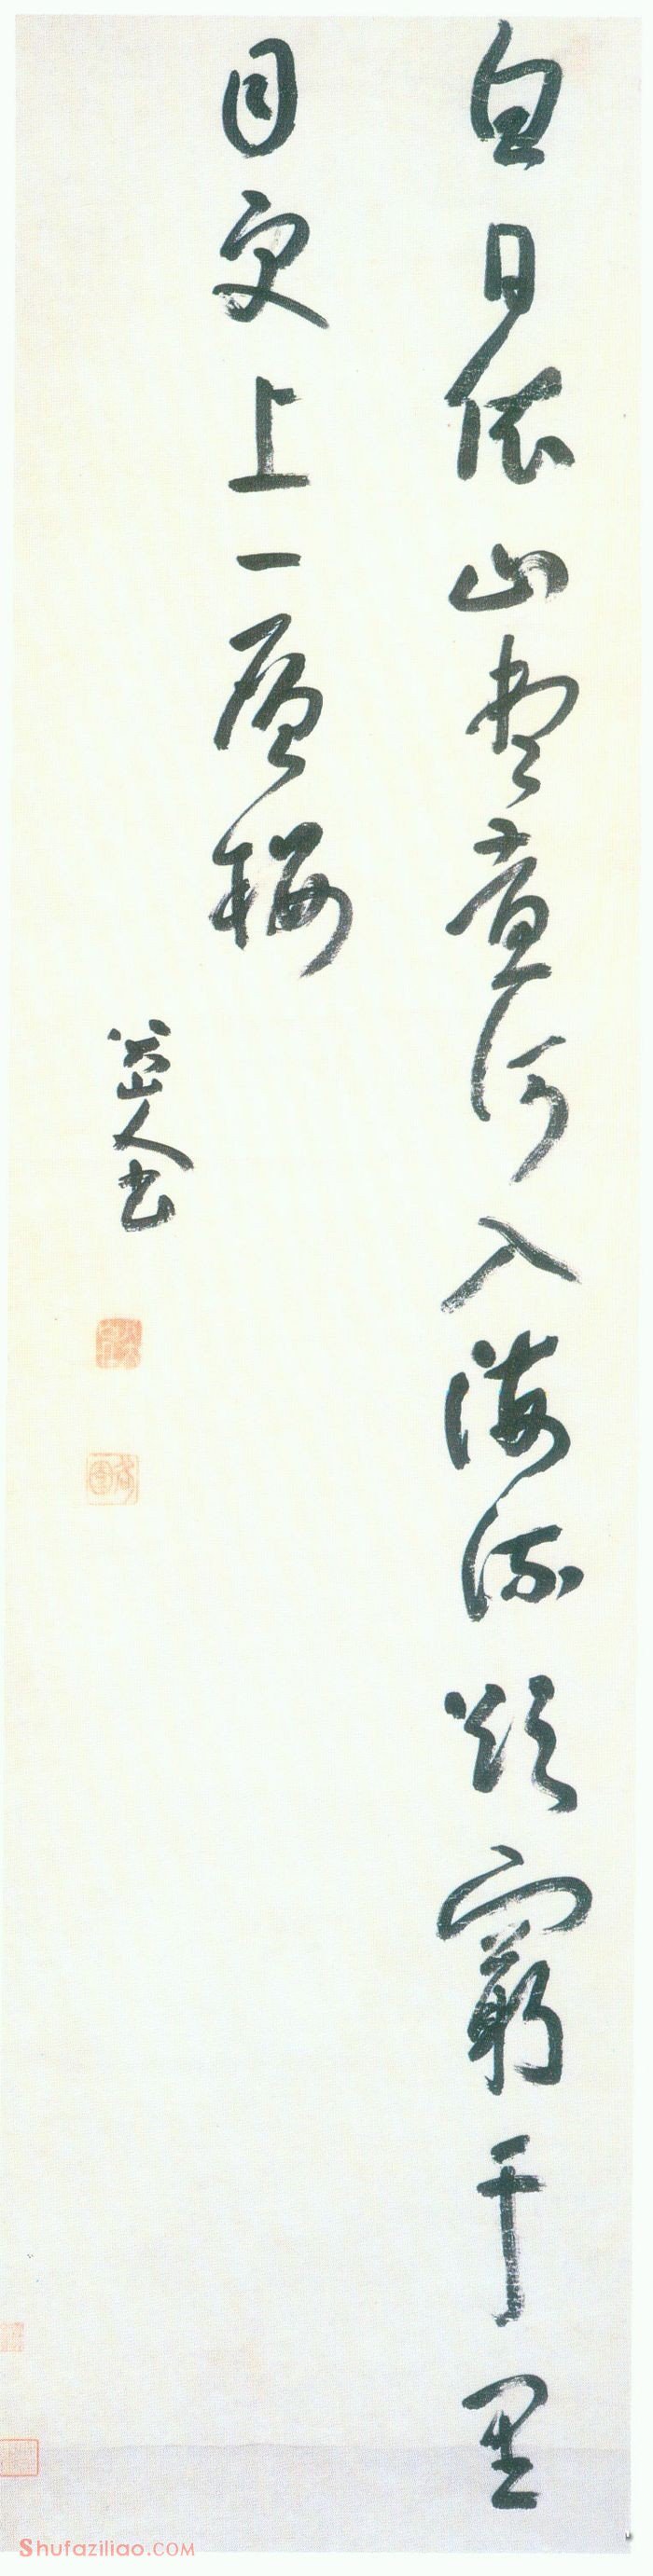 白日依山盡黃河入海流欲窮千里
目更上一層樓
八大山人書
Shufaziliao.COM